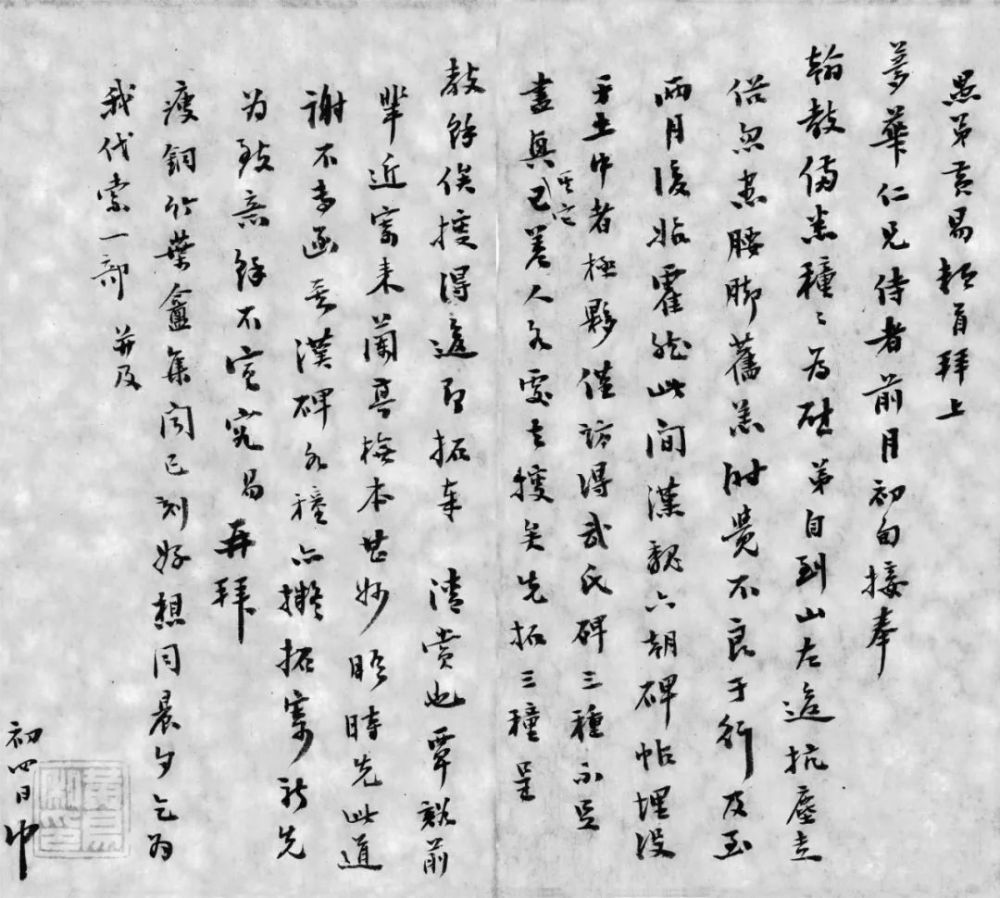 愚弟黃易頓首拜上
夢華仁兄侍者前月初旬接奉
翰教備悉種〻為慰弟自到山左這抗塵走
俗忽患腰脚舊恙肘覺不良于行友至
兩月後始霍然此間漢魏六朝碑帖埋沒
于土中者極夥僅訪得武氏碑三種不足
盡興
其它
已著人各處去搜矣先拓三種呈
教餘俟搜得這即拓奉 清賞也覃谿前
輩近寄來蘭亭橅本甚妙 晤時先此道
謝不書函去漢碑各種亦擬拓寄祈先
為致意餘不宣究易再拜
瘦銅竹葉盦集聞已刻好想同晨夕乞為
我代索一部 並及
初四日巾